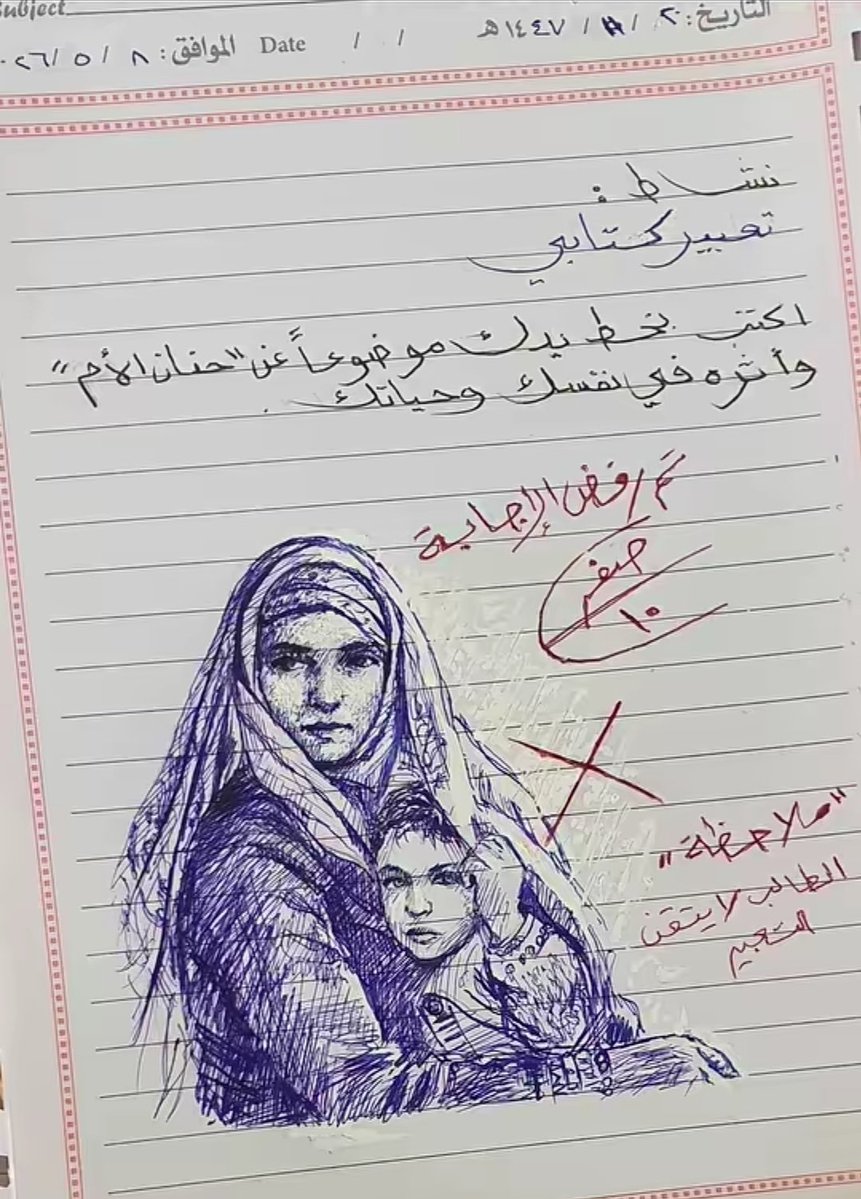 Subject
التاريخ: ٢٠ / ١١ / ١٤٤٧هـ
الموافق: ٨ / ٥ / ٢٠٢٦ Date / /
نشاط :
تعبير كتابي
اكتب بخط يدك موضوعاً عن "حنان الأم"
وأثره في نفسك وحياتك .
تم رفض الإجابة
صفر
١٠
"ملاحظة"
الطالب لا يتقن
التعبير